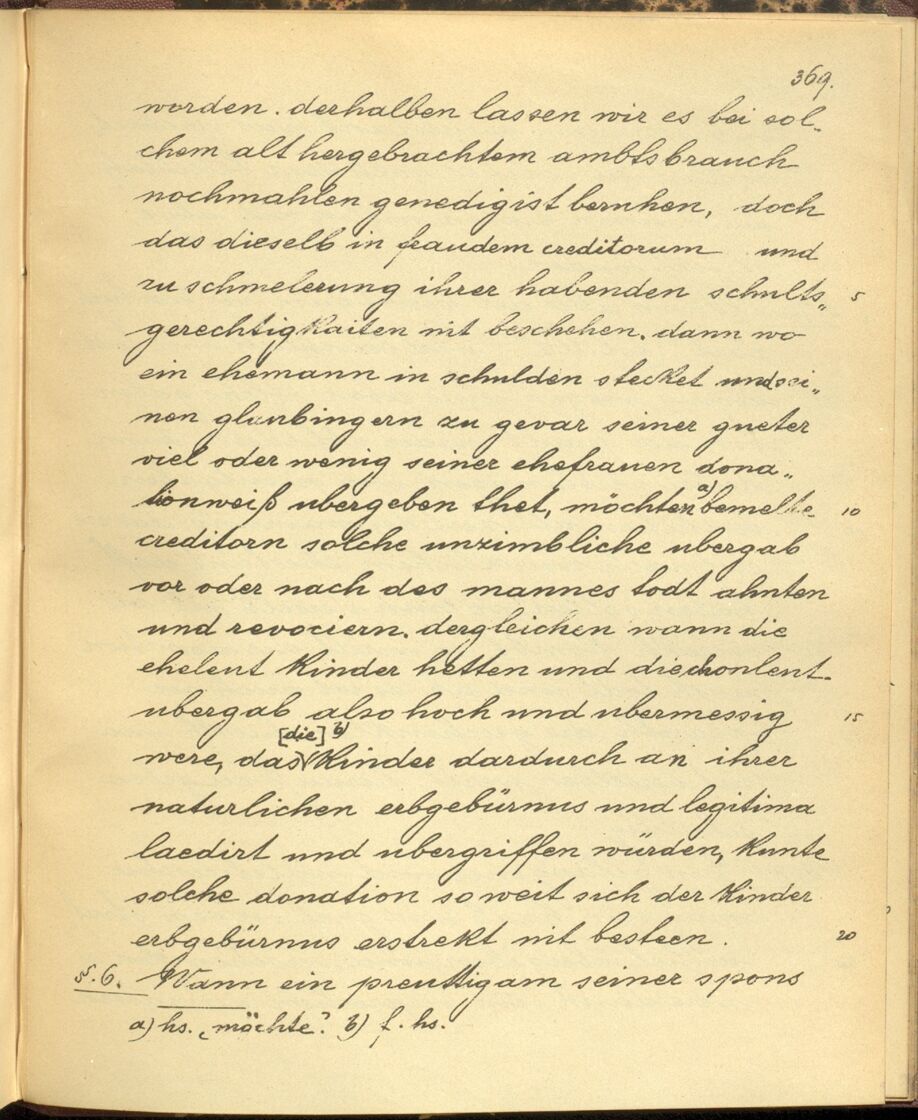 369.
worden. derhalben lassen wir es bei sol-
chem alt hergebrachtem ambtsbrauch
nochmahlen genedigist beruhen, doch
das dieselb in fraudem creditorum und
zu schmelerung ihrer habenden schults„ 5
gerechtigkaiten nit beschehen. dann wo
ein ehemann in schulden stecket und sei„
nen glaubingern zu gevar seiner gueter
viel oder wenig seiner ehefrauen dona„
tionweiß ubergeben thet, möchten a) bemelte 10
creditorn solche unzimbliche ubergab
vor oder nach des mannes todt ahnten
und revociern. dergleichen wann die
eheleut kinder hetten und die
ubergab also hoch und ubermessig 15
were, das [die] b) kinder dardurch an ihrer
naturlichen erbgebürnus und legitima
laedirt und ubergriffen würden, kunte
solche donation so weit sich der kinder
erbgebürnus erstrekt nit besteen. 20
§. 6. Wann ein preuttigam seiner spons
a) hs. „möchte". b) f. hs.